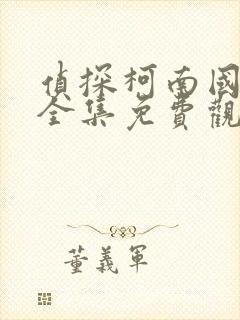 偵探柯南國
全集免費觀
董義軍